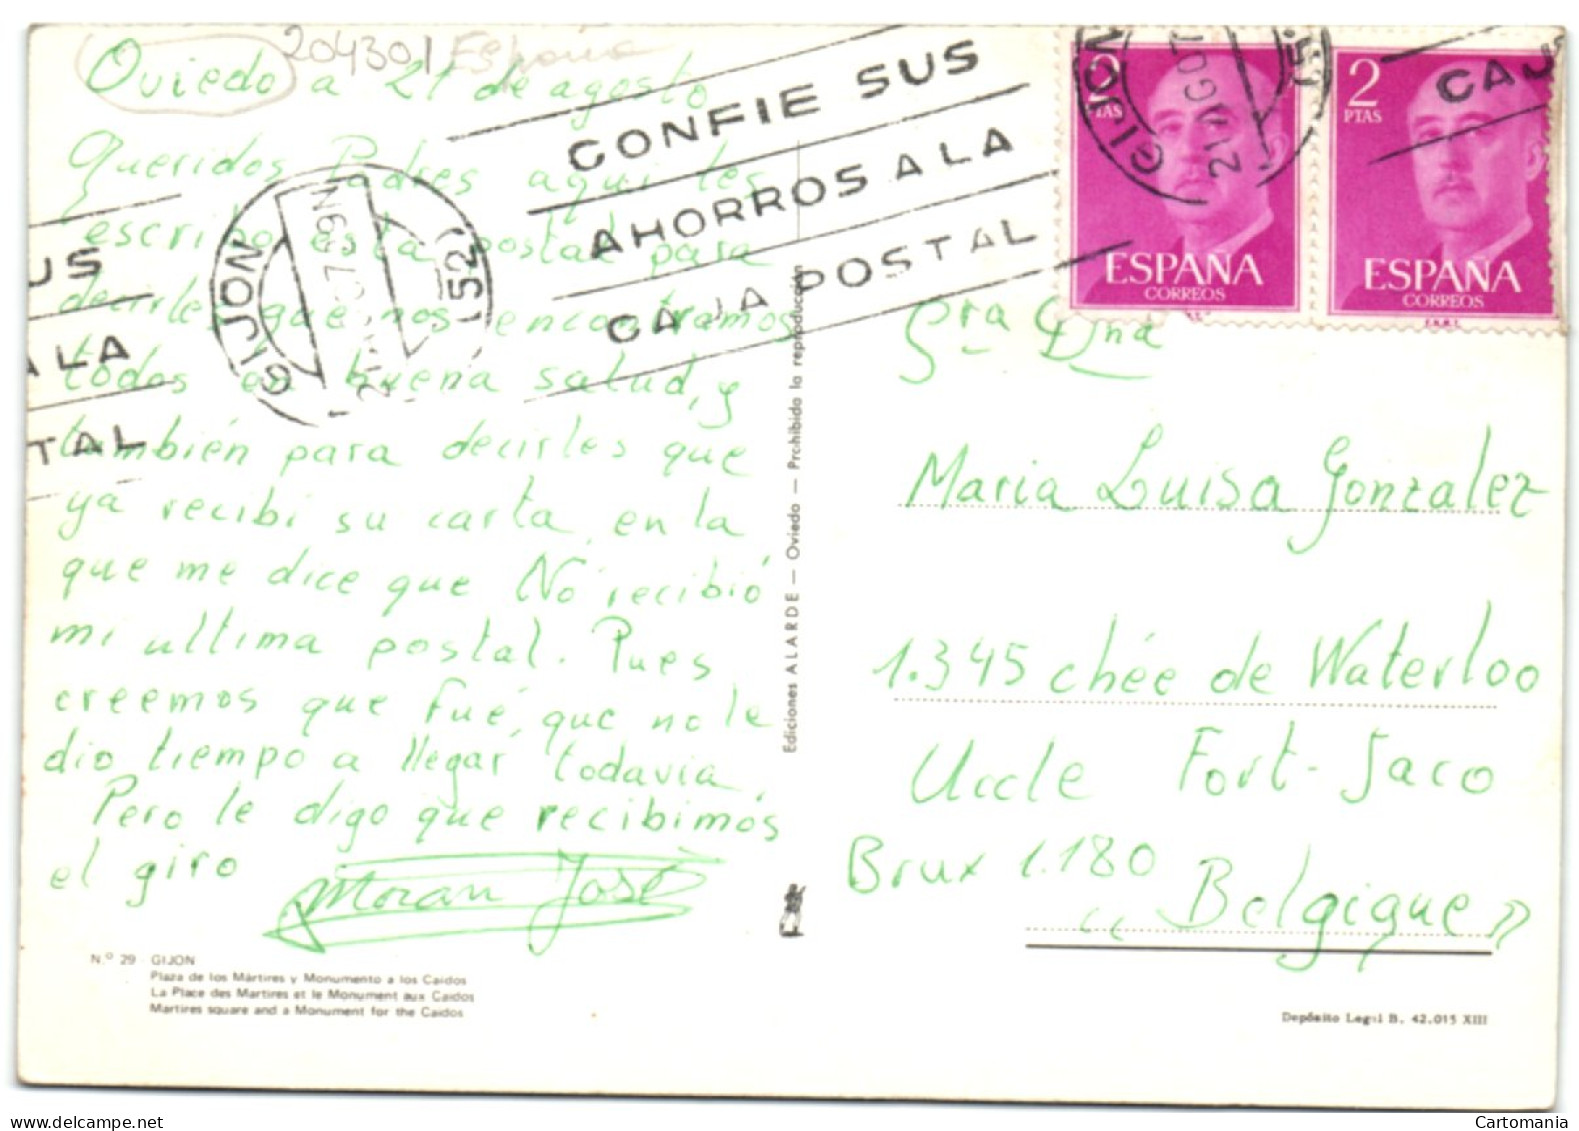 204301 España
Oviedo a 21 de agosto
Queridos Padres aqui les
escribo esta postal para
decirles que nos encontramos
todos en buena salud, y
también para decirles que
ya recibi su carta, en la
que me dice que No recibió
mi ultima postal. Pues
creemos que fué, que no le
dio tiempo a llegar todavia,
Pero le digo que recibimos
el giro
Moran José
N.º 29 - GIJON
Plaza de los Mártires y Monumento a los Caidos
La Place des Martires et le Monument aux Caidos
Martires square and a Monument for the Caidos
US
ALA
TAL
GIJON
(52)
CONFIE SUS
AHORROS A LA
CAJA POSTAL
Ediciones ALARDE — Oviedo — Prohibida la reproducción
GIJON
21 AGO
2
PTAS
ESPAÑA
CORREOS
2
PTAS
CAJ
ESPAÑA
CORREOS
Sra Dna
Maria Luisa Gonzalez
1.345 chée de Waterloo
Uccle Fort-Jaco
Brux 1.180
"Belgique"
Depósito Legal B. 42.015 XIII
Cartomania